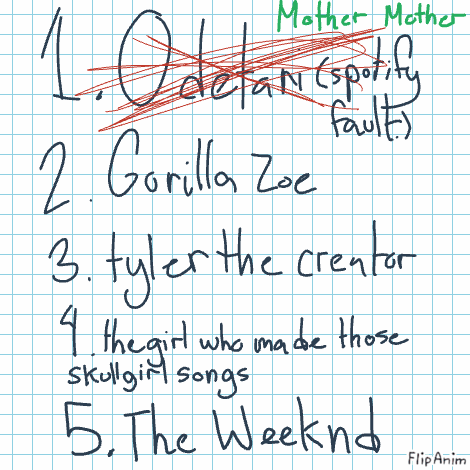 Mother Mother
1. Odetari (spotify
fault.)
2. Gorilla Zoe
3. tyler the creator
4. the girl who made those
skullgirl songs
5. The Weeknd
FlipAnim